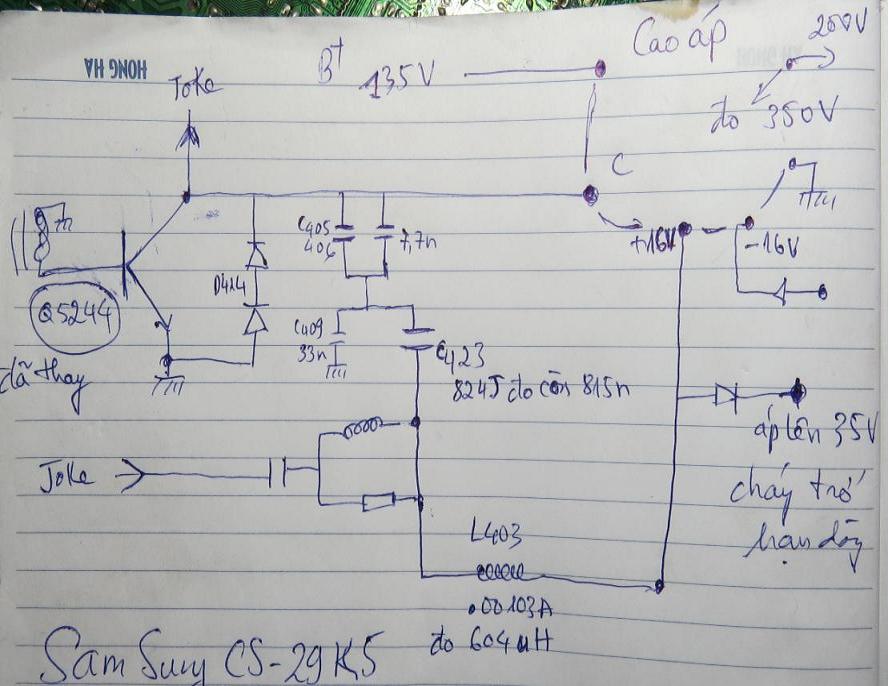 HONG HA
Cao áp
200V
B+
135V
Joke
đo 350V
C
C405
406
7,7n
+16V
-16V
D414
Q5244
C409
33n
C423
đã thay
824J đo còn 815n
áp lên 35V
Joke
cháy trở
hạn dòng
L403
.00103A
đo 604uH
SamSung CS-29K5